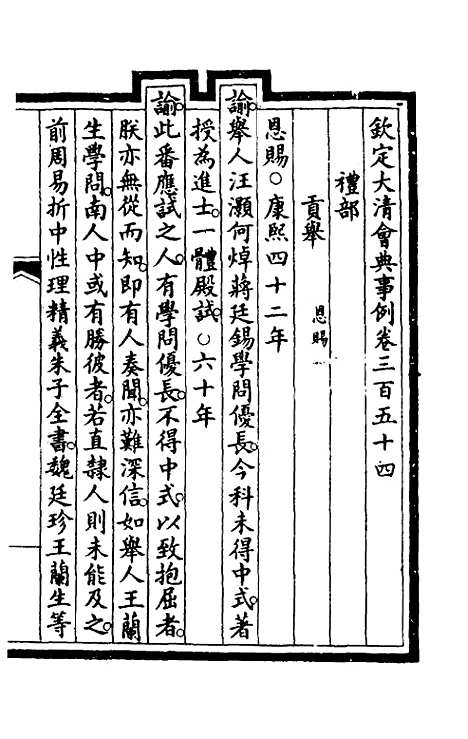 欽定大清會典事例卷三百五十四
禮部
貢舉 恩賜
恩賜○康熙四十二年
諭。舉人汪灝何焯蔣廷錫學問優長。今科未得中式。著
授為進士。一體殿試。○六十年
諭。此番應試之人。有學問優長。不得中式。以致抱屈者。
朕亦無從而知。即有人奏聞。亦難深信。如舉人王蘭
生學問。南人中或有勝彼者。若直隸人則未能及之。
前周易折中性理精義朱子全書。魏廷珍王蘭生等